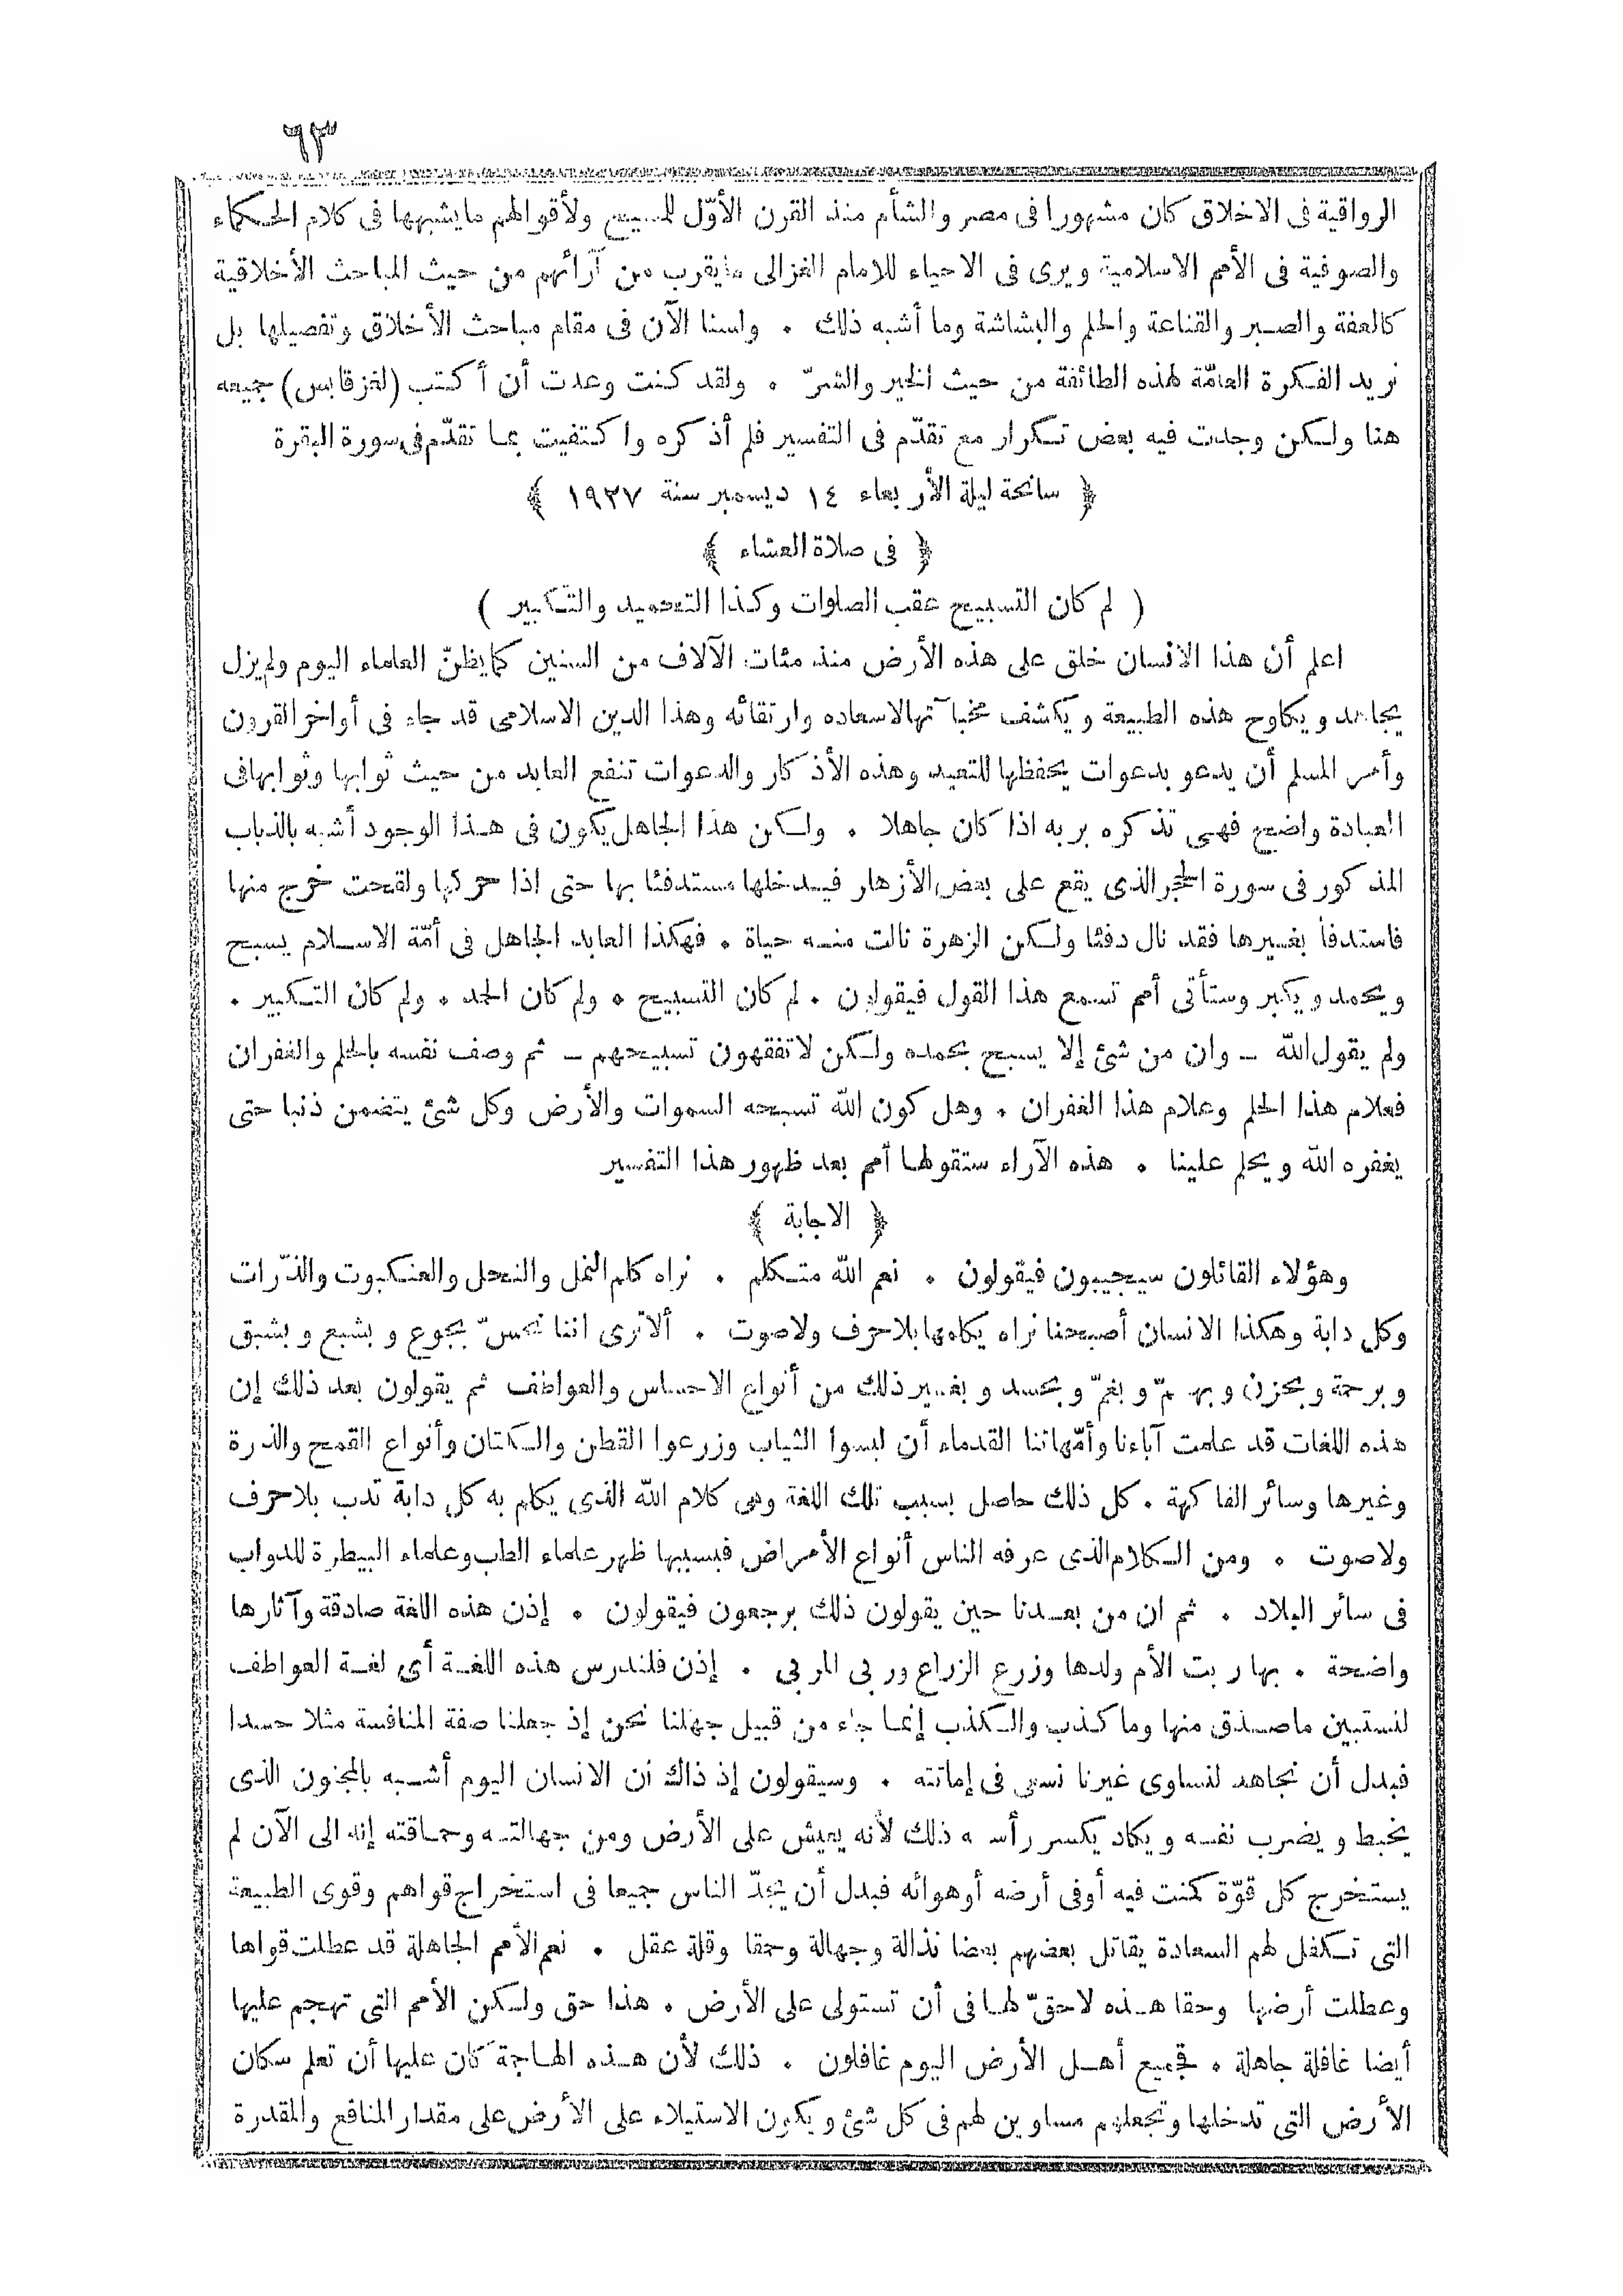 ٦٣
الرواقية فى الاخلاق كان مشهورا فى مصر والشأم منذ القرن الأوّل للمسيح ولأقوالهم مايشبهها فى كلام الحكماء
والصوفية فى الأمم الاسلامية ويرى فى الاحياء للامام الغزالى مايقرب من آرائهم من حيث المباحث الأخلاقية
كالعفة والصبر والقناعة والحلم والبشاشة وما أشبه ذلك . ولسنا الآن فى مقام مباحث الأخلاق وتفصيلها بل
نريد الفكرة العامّة لهذه الطائفة من حيث الخير والشرّ . ولقد كنت وعدت أن أكتب (لغز قابس) جميعه
هنا ولكن وجدت فيه بعض تكرار مع تقدّم فى التفسير فلم أذكره واكتفيت بما تقدّم فى سورة البقرة
﴿ سانحة ليلة الأربعاء ١٤ ديسمبر سنة ١٩٢٧ ﴾
﴿ فى صلاة العشاء ﴾
( لم كان التسبيح عقب الصلوات وكذا التحميد والتكبير )
اعلم أن هذا الانسان خلق على هذه الأرض منذ مئات الآلاف من السنين كمايظنّ العلماء اليوم ولم يزل
يجاهد ويكاوح هذه الطبيعة ويكشف مخبآتها لاسعاده وارتقائه وهذا الدين الاسلامى قد جاء فى أواخر القرون
وأمر المسلم أن يدعو بدعوات يحفظها للتعبد وهذه الأذكار والدعوات تنفع العابد من حيث ثوابها وثوابها فى
العبادة واضح فهى تذكره بربه اذا كان جاهلا . ولكن هذا الجاهل يكون فى هذا الوجود أشبه بالذباب
المذكور فى سورة الحجر الذى يقع على بعض الأزهار فيدخلها مستدفئا بها حتى اذا حركها ولقحت خرج منها
فاستدفأ بغيرها فقد نال دفئا ولكن الزهرة نالت منه حياة . فهكذا العابد الجاهل فى أمّة الاسلام يسبح
ويحمد ويكبر وستأتى أمم تسمع هذا القول فيقولون . لم كان التسبيح . ولم كان الحمد . ولم كان التكبير .
ولم يقول الله ــ وان من شئ إلا يسبح بحمده ولكن لاتفقهون تسبيحهم ــ ثم وصف نفسه بالحلم والغفران
فعلام هذا الحلم وعلام هذا الغفران . وهل كون الله تسبحه السموات والأرض وكل شئ يتضمن ذنبا حتى
يغفره الله ويحلم علينا . هذه الآراء ستقولها أمم بعد ظهور هذا التفسير
﴿ الاجابة ﴾
وهؤلاء القائلون سيجيبون فيقولون . نعم الله متكلم . نراه كلم النمل والنحل والعنكبوت والذرّات
وكل دابة وهكذا الانسان أصبحنا نراه يكلمها بلاحرف ولاصوت . ألاترى اننا نحسّ بجوع وبشبع وبشبق
وبرحمة وبحزن وبهمّ وبغمّ وبحسد وبغير ذلك من أنواع الاحساس والعواطف ثم يقولون بعد ذلك إن
هذه اللغات قد علمت آباءنا وأمّهاتنا القدماء أن لبسوا الثياب وزرعوا القطن والكتان وأنواع القمح والذرة
وغيرها وسائر الفاكهة . كل ذلك حاصل بسبب تلك اللغة وهى كلام الله الذى يكلم به كل دابة تدب بلاحرف
ولاصوت . ومن الكلام الذى عرفه الناس أنواع الأمراض فبسببها ظهر علماء الطب وعلماء البيطرة للدواب
فى سائر البلاد . ثم ان من بعدنا حين يقولون ذلك يرجعون فيقولون . إذن هذه اللغة صادقة وآثارها
واضحة . بها ربت الأم ولدها وزرع الزراع وربى المربى . إذن فلندرس هذه اللغة أى لغة العواطف
لنستبين ماصدق منها وما كذب والكذب إنما جاء من قبيل جهلنا نحن إذ جعلنا صفة المنافسة مثلا حسدا
فبدل أن نجاهد لنساوى غيرنا نسعى فى إماتته . وسيقولون إذ ذاك ان الانسان اليوم أشبه بالمجنون الذى
يخبط ويضرب نفسه ويكاد يكسر رأسه ذلك لأنه يعيش على الأرض ومن جهالته وحماقته إنه الى الآن لم
يستخرج كل قوّة كمنت فيه أوفى أرضه أوهوائه فبدل أن يجدّ الناس جميعا فى استخراج قواهم وقوى الطبيعة
التى تكفل لهم السعادة يقاتل بعضهم بعضا نذالة وجهالة وحمقا وقلة عقل . نعم الأمم الجاهلة قد عطلت قواها
وعطلت أرضها وحقا هذه لاحقّ لها فى أن تستولى على الأرض . هذا حق ولكن الأمم التى تهجم عليها
أيضا غافلة جاهلة . فجميع أهل الأرض اليوم غافلون . ذلك لأن هذه الهاجمة كان عليها أن تعلم سكان
الأرض التى تدخلها وتجعلهم مساوين لهم فى كل شئ ويكون الاستيلاء على الأرض على مقدار المنافع والمقدرة